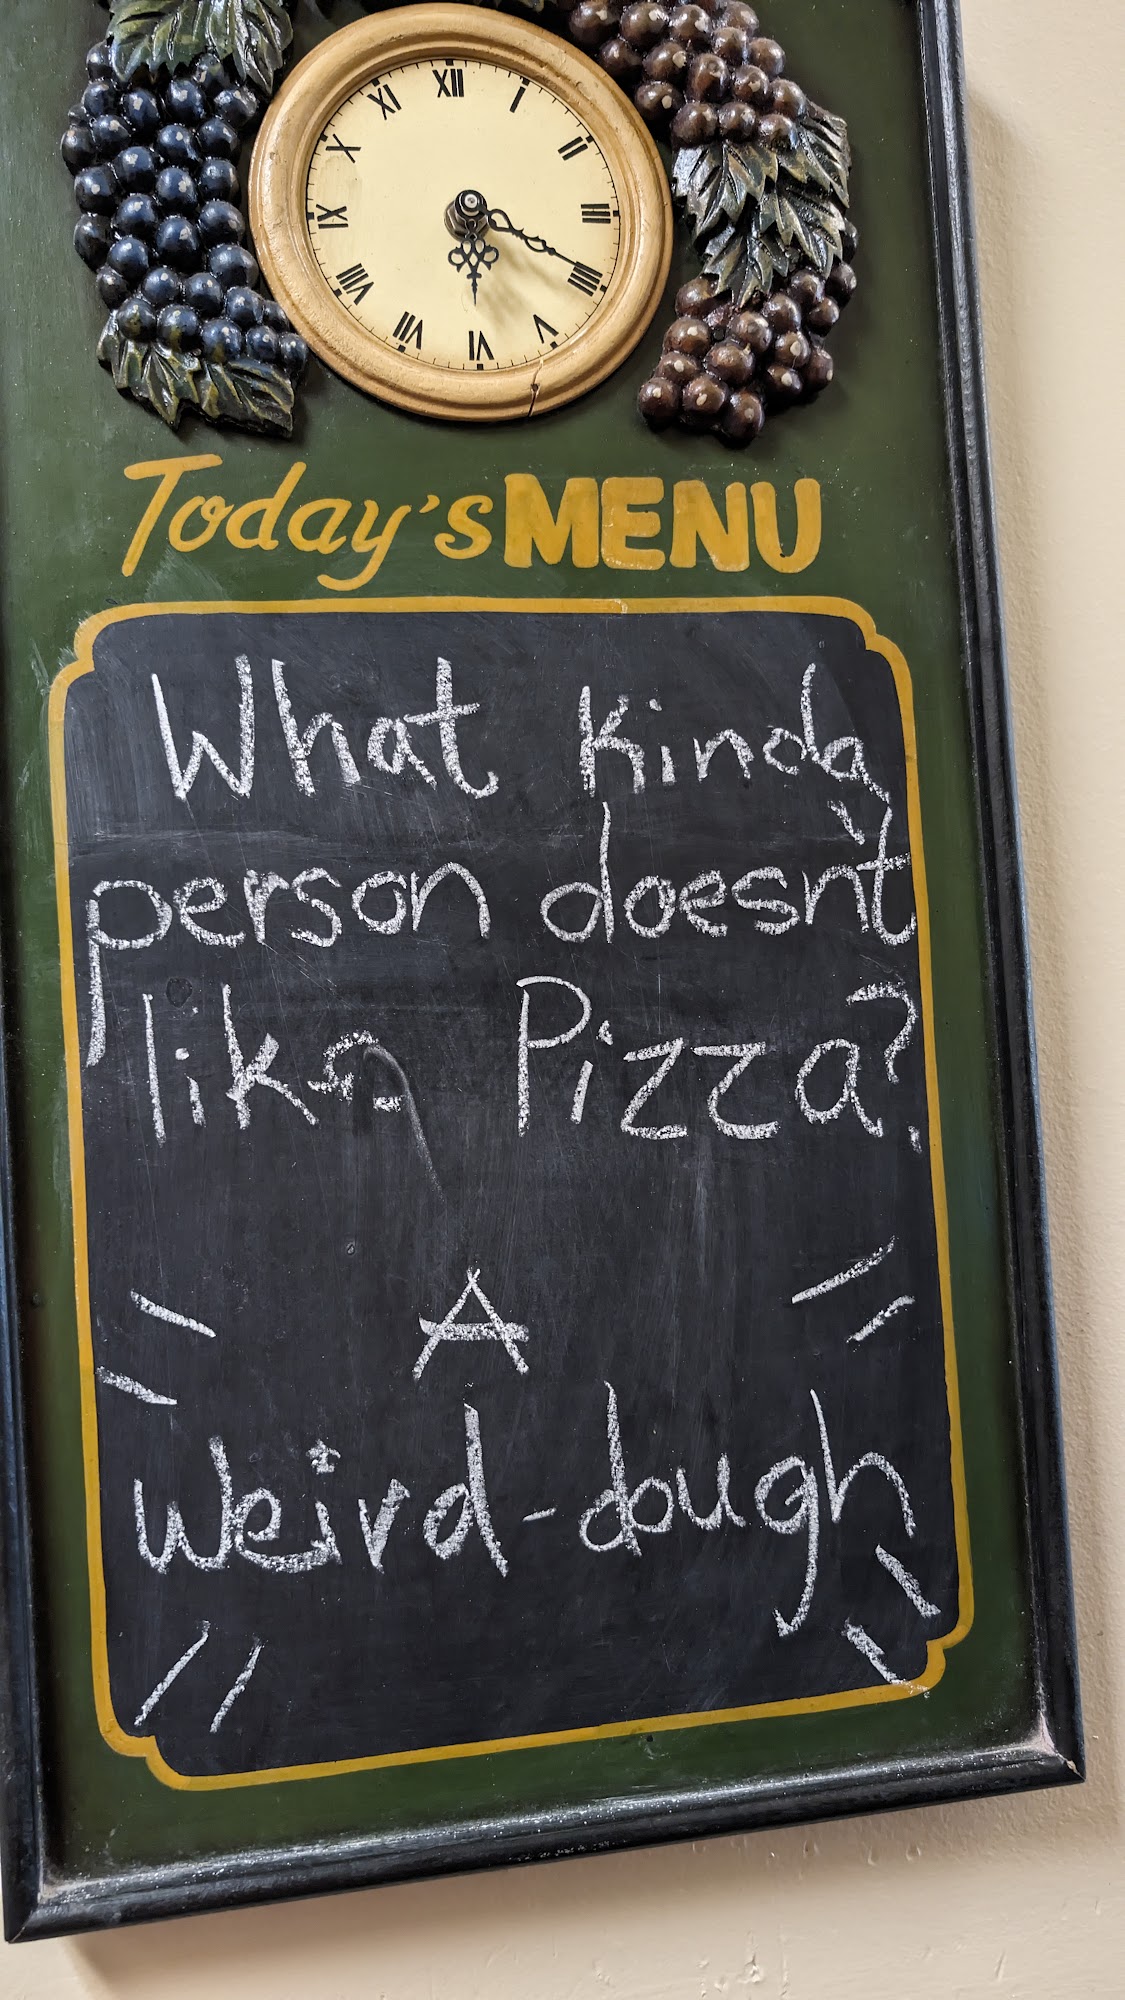 XII
I
II
III
IIII
V
VI
VII
VIII
IX
X
XI
Today's MENU
What Kinda
person doesn't
like Pizza?
A
Weird-dough